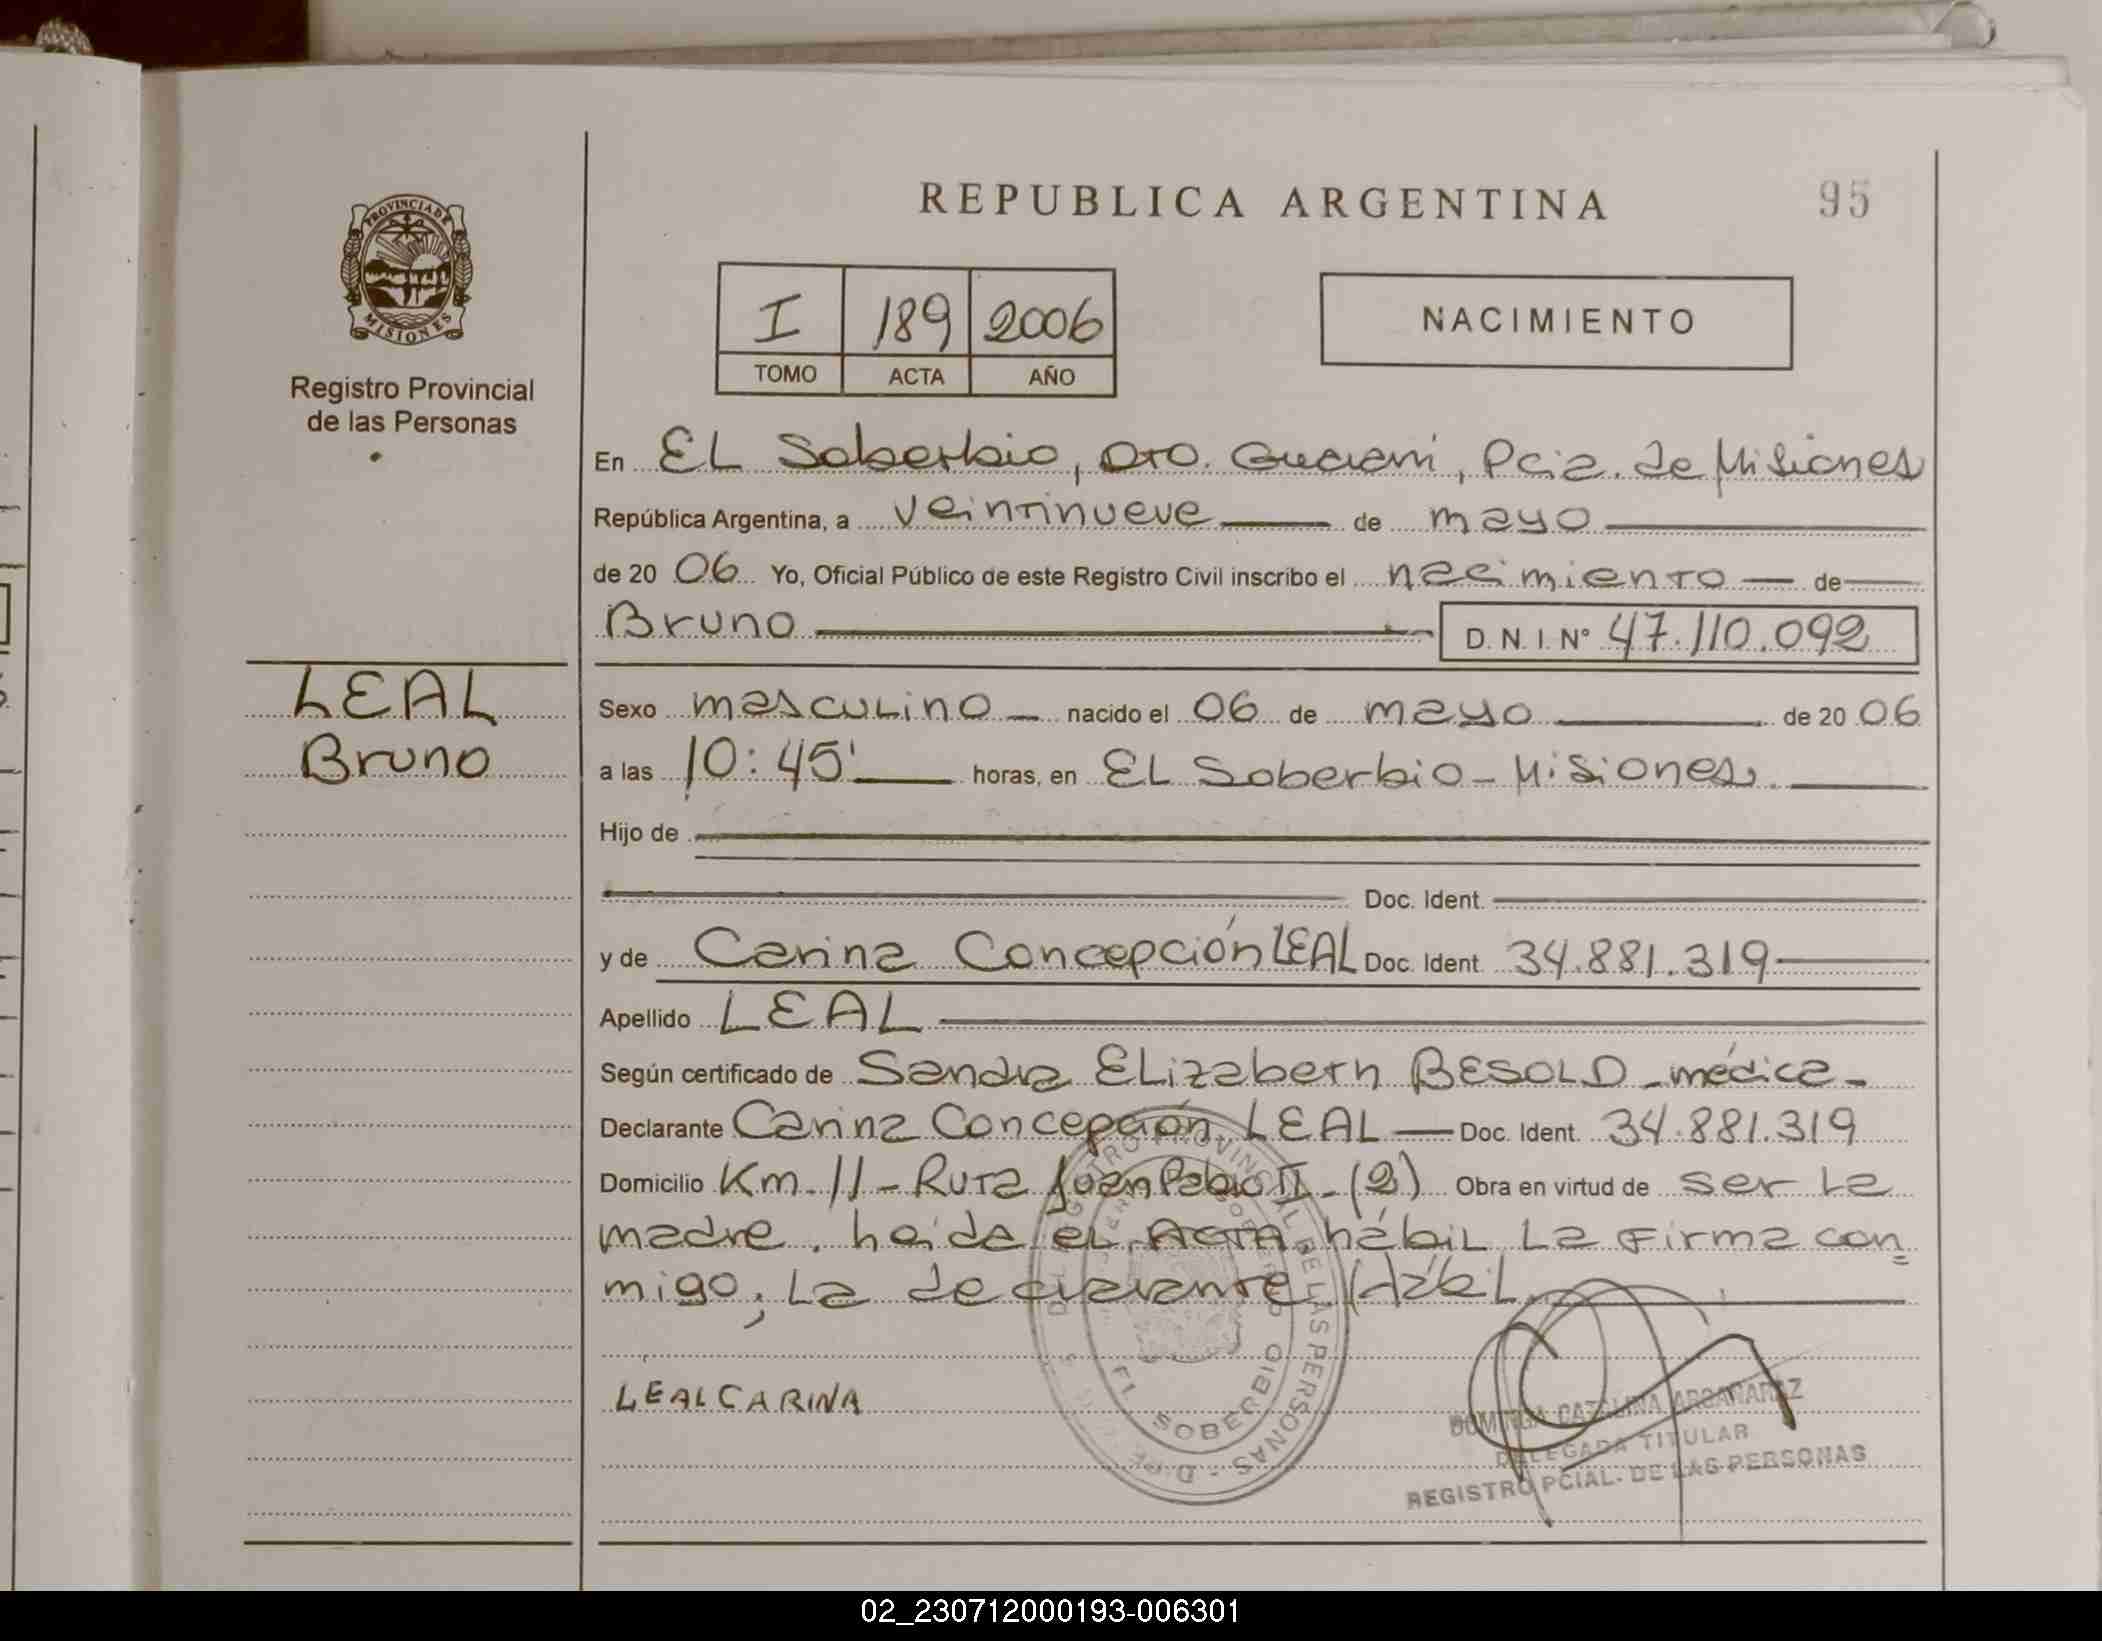 REPUBLICA ARGENTINA
95
PROVINCIA DE
MISIONES
Registro Provincial
de las Personas
I 189 2006
TOMO ACTA AÑO
NACIMIENTO
En EL Soberbio, Dto. Guaraní, Pcia. de Misiones
República Argentina, a veintinueve de mayo
de 2006 Yo, Oficial Público de este Registro Civil inscribo el nacimiento de
Bruno D.N.I. N° 47.110.092
LEAL
Bruno
Sexo masculino nacido el 06 de mayo de 2006
a las 10:45' horas, en EL Soberbio - Misiones.
Hijo de
Doc. Ident.
y de Carina Concepción LEAL Doc. Ident. 34.881.319
Apellido LEAL
Según certificado de Sandra ELizabeth BESOLD - médica -
Declarante Carina Concepción LEAL Doc. Ident. 34.881.319
Domicilio Km. 11 - Ruta Juan Pablo II - (2) Obra en virtud de ser La
madre. Leída el ACTA, hábil La Firma con
migo; La declarante Hábil.
LEAL CARINA
REGISTRO PROVINCIAL DE LAS PERSONAS
EL SOBERBIO
DOMINGA CATALINA ARGAÑARAZ
DELEGADA TITULAR
REGISTRO PCIAL. DE LAS PERSONAS
02_230712000193-006301